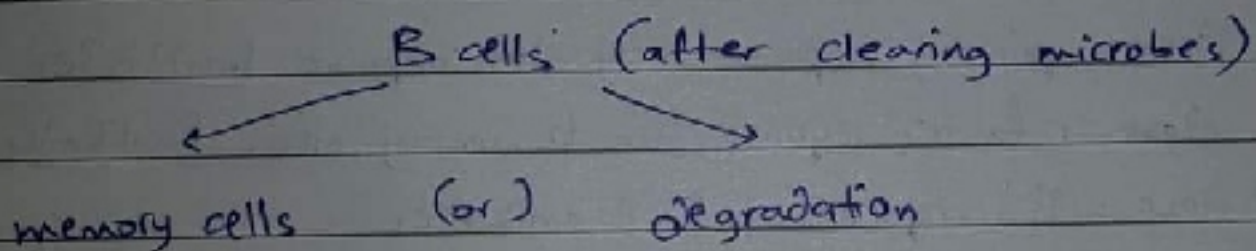 B cells (after clearing microbes)
memory cells (or) degradation